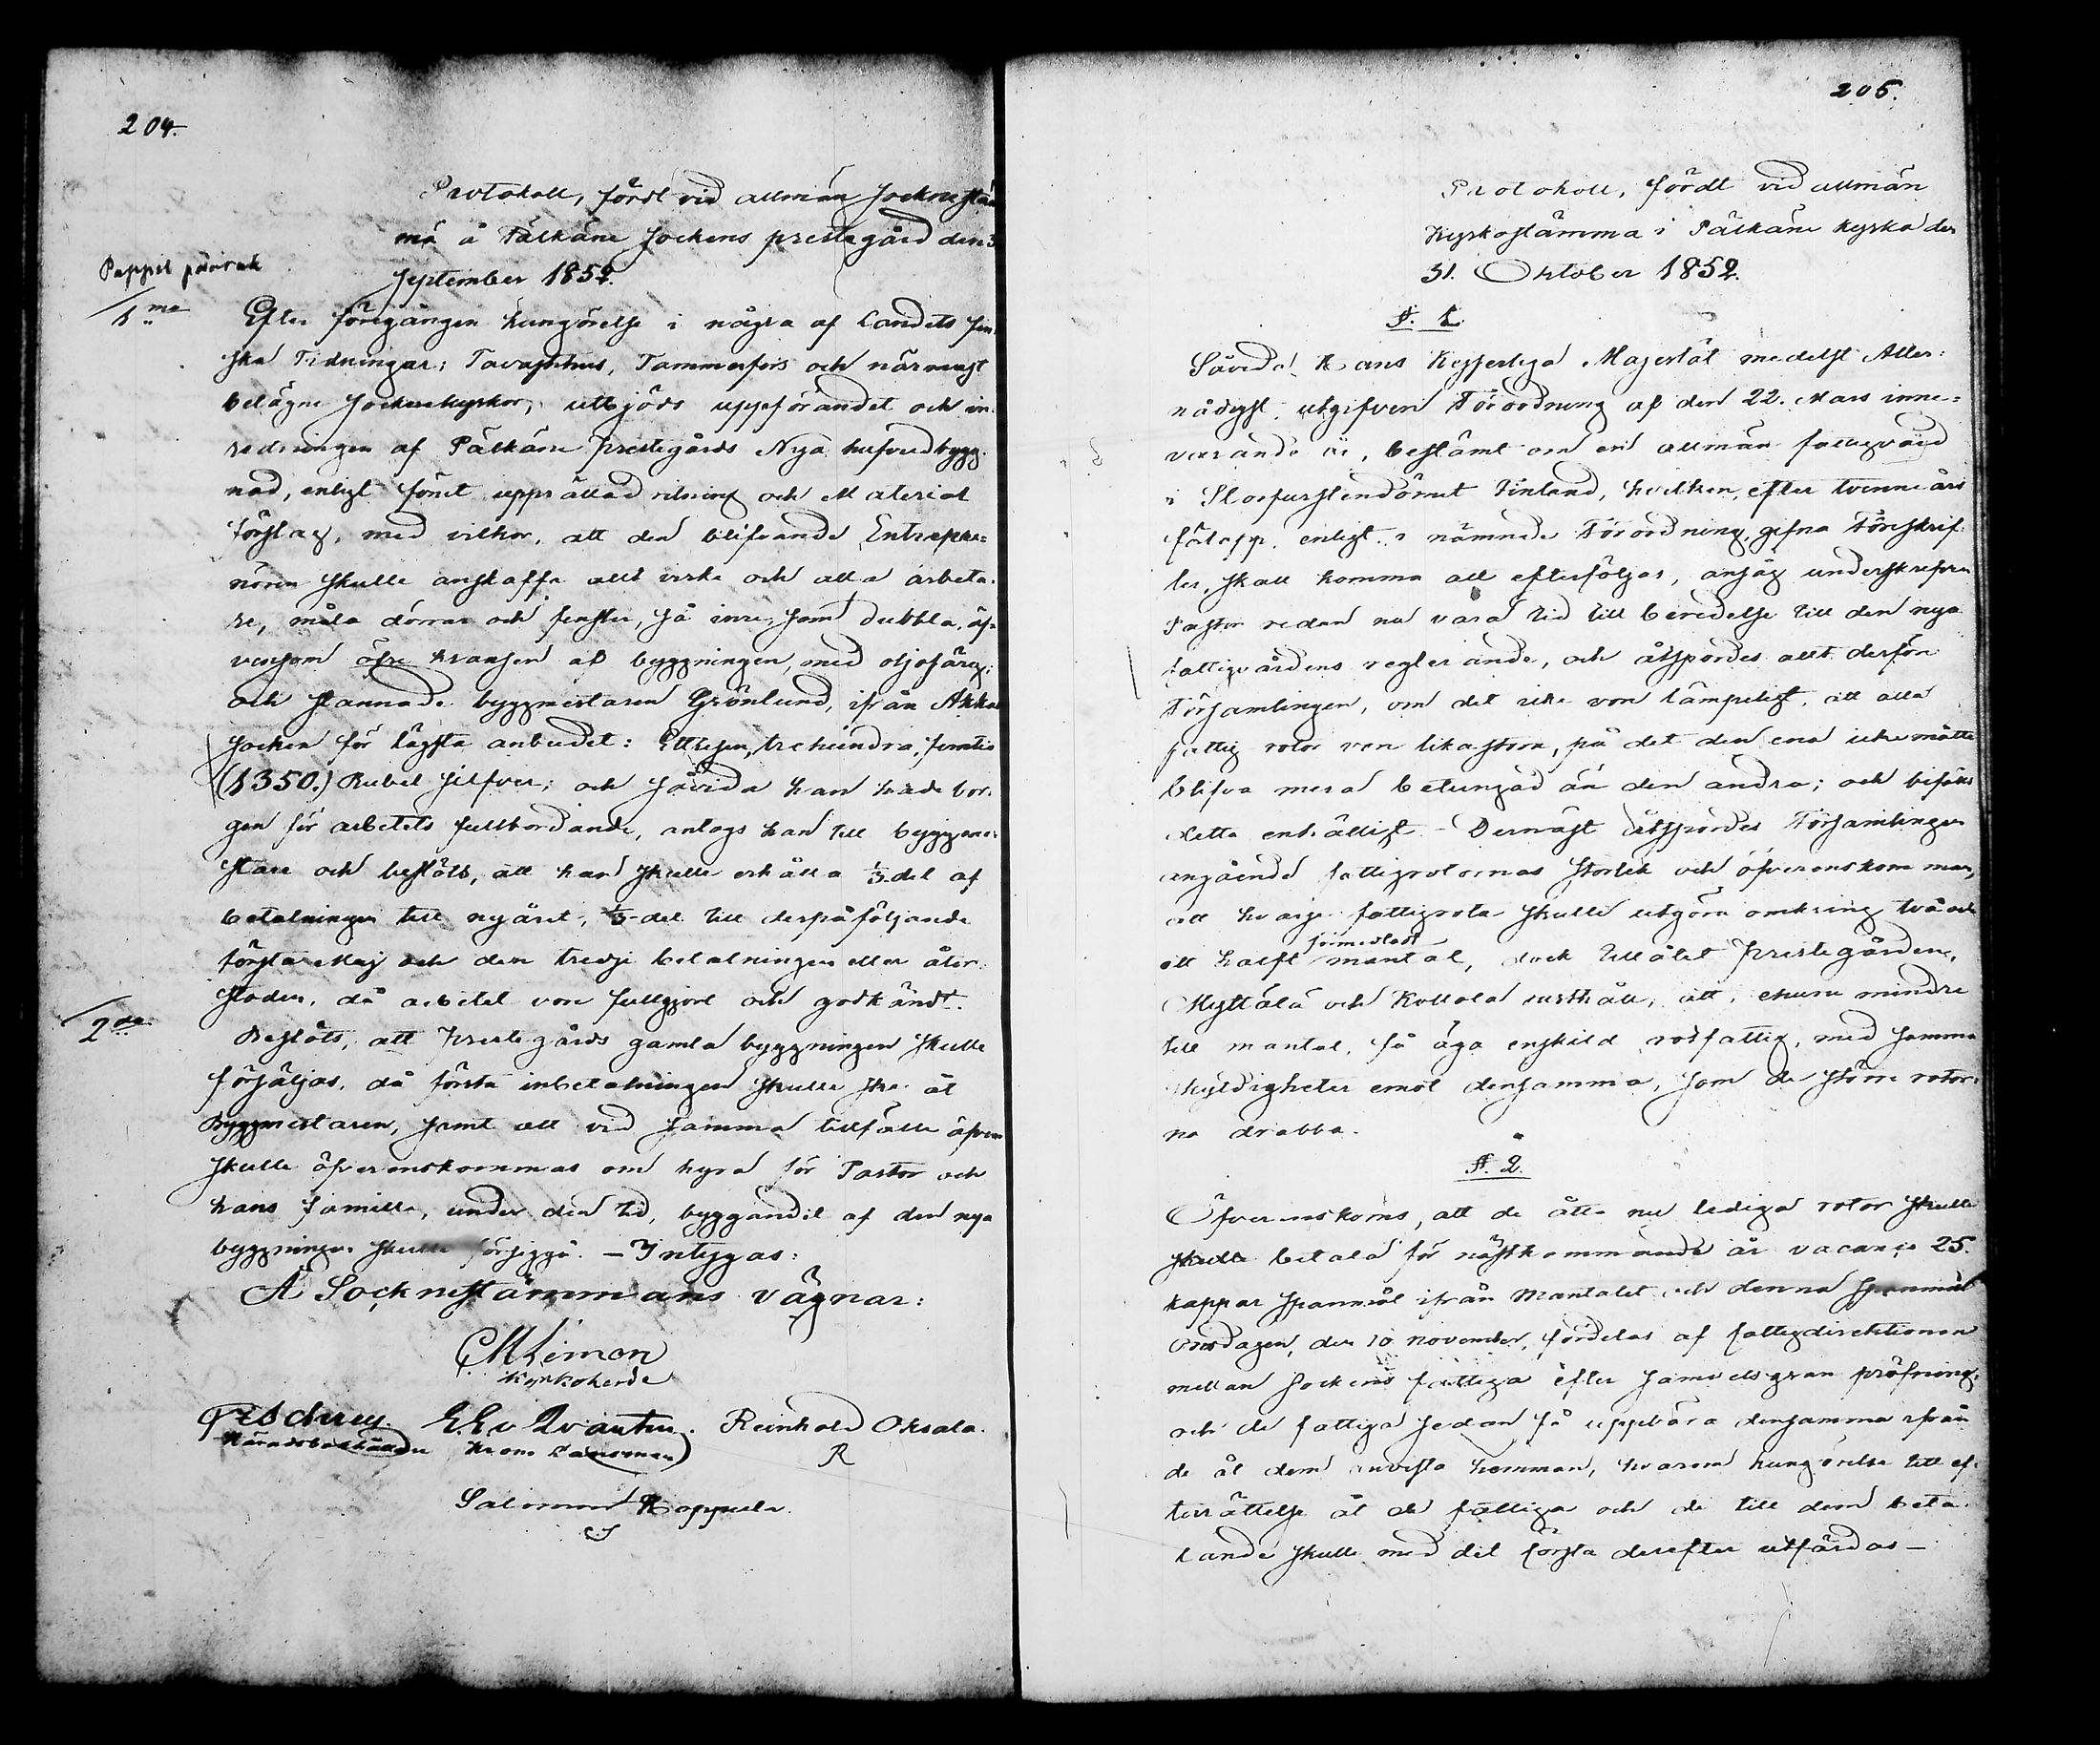 204.
Protokoll, fördt vid allmän Socknestäm
ma å Pälkäne Sockens prestegård den 3
September 1852.
Pappil päärak
1 mo
Efter föregången kungörelse i några af Landets fin
ska Tidningar; Tavasthus, Tammerfors och närmast
belägne Sockenekyrkor, utbjöds uppförandet och in-
redningen af Pälkäne prestegårds Nya hufvudbygg-
nad, enligt förut upprättad ritning och Material
förslag, med vilkor, att den blifvande Entrepre-
nören skulle anskaffa allt virke och alla arbeta-
re, måla dörrar och fenster, så inre, som dubbla, äf-
vensom öfre kransen af byggningen, med oljofärg;
och stannade byggmestaren Grönlund, ifrån Akkas
Socken för lägsta anbudet: Ettusen, trehundra, femtio
(1350.) Rubel Silfver; och såvida han hade bor-
gen för arbetets fullbordande, antogs han till byggme-
stare och beslöts, att han skulle erhålla 1/3 del af
betalningen till nyåret, 1/3-del till derpåföljande
första Maj och den tredje betalningen eller åter-
stoden, då arbetet vore fullgjort och godkändt.
2 do
Beslöts, att Prestegårds gamla byggningen skulle
försäljas, då första inbetalningen skulle ske åt
Byggmestaren, samt att vid samma tillfälle äfven
skulle öfverenskommas om hyra för Pastor och
hans famille, under den tid, byggandet af den nya
byggningen skulle försiggå. – Intygas:
Å Sócknestämmans vägnar:
C M Limon
Kyrkoherde
Häradshöfdinge
E. E. v Qvanten.
Krono Länsman
Reinhold Oksala.
R
Salomon Kappula.
S
205.
Protokoll, fördt vid allmän
Kyrkostämma i Pälkäne kyrka den
31. Oktober 1852.
§. 1.
Såvida Hans Kejserliga Majestät medelst Aller-
nådigst utgifven Förordning af den 22. Mars inne-
varande år, bestämt om en allmän fattigvård
i Storfurstendömet Finland, hvilken, efter tvenne års
förlopp, enligt i nämnde Förordning gifna Föreskrif-
ter, skall komma att efterföljas, ansåg underskrifven
Pastor redan nu vara tid till beredelse till den nya
fattigvårdens reglerande, och åtspordes allt derför
Församlingen, om det icke vore lämpeligt, att alla
fattig rotor vore lika stora, på det den ena icke måtte
blifva mera betungad än den andra; och bifölls
detta enhälligt. – Dernäst åtspordes Församlingen
angående fattigrotornas storlek och öfverenskoms man,
att hvarje fattigrota skulle utgöra omkring två och
ett halft förmedladt mantal, dock tillåtet Prestegården,
Myttälä och Kollola rusthåll, att, ehuru mindre
till mantal, få äga enskild rotfattig, med samma
skyldigheter emot densamma, som de större rotor-
na drabba.
§. 2.
Öfverenskoms, att de åtta nu lediga rotor skulle
skulle betala för nästkommande år vacançe 25.
kappar Spannmål ifrån Mantalet och denna Spannmål
Onsdagen, den 10 November, fördelas af fattigdirektionen
mellan Sockens fattiga efter samvetsgran pröfning,
och de fattiga sedan få uppbära densamma ifrån
de åt dem anvista hemman, hvarom kungörelse till ef-
terrättelse åt de fattiga och de till dem beta-
lande skulle med det första derefter utfärdas –